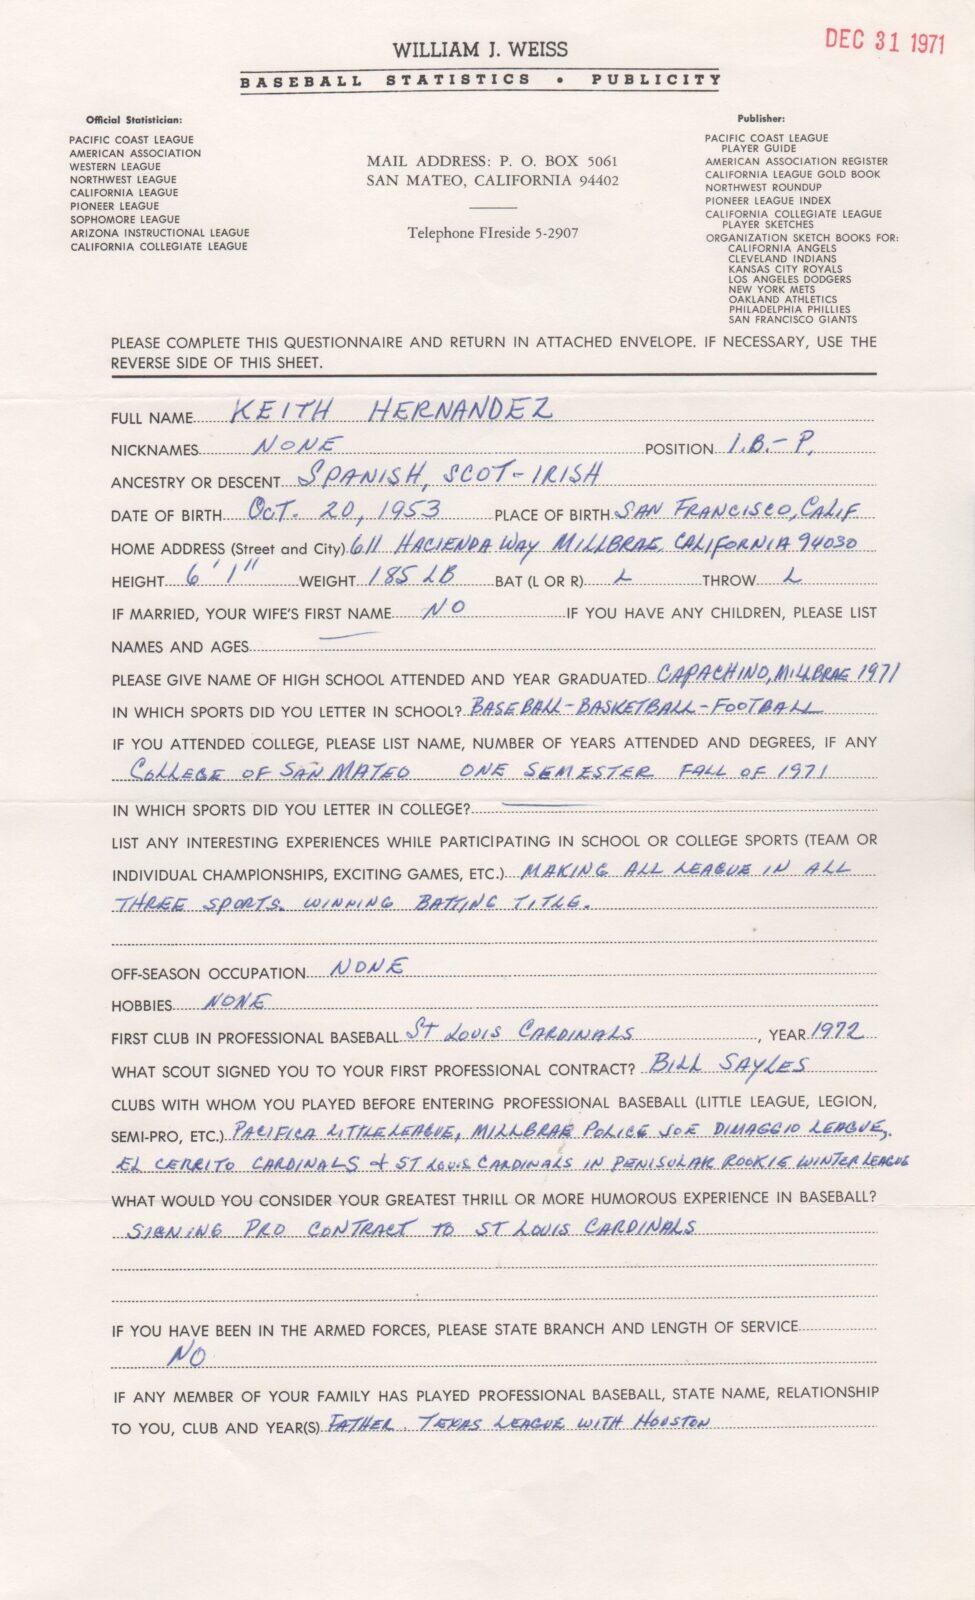 DEC 31 1971
WILLIAM J. WEISS
BASEBALL STATISTICS • PUBLICITY
Official Statistician:
PACIFIC COAST LEAGUE
AMERICAN ASSOCIATION
WESTERN LEAGUE
NORTHWEST LEAGUE
CALIFORNIA LEAGUE
PIONEER LEAGUE
SOPHOMORE LEAGUE
ARIZONA INSTRUCTIONAL LEAGUE
CALIFORNIA COLLEGIATE LEAGUE
MAIL ADDRESS: P. O. BOX 5061
SAN MATEO, CALIFORNIA 94402
Telephone FIreside 5-2907
Publisher:
PACIFIC COAST LEAGUE
PLAYER GUIDE
AMERICAN ASSOCIATION REGISTER
CALIFORNIA LEAGUE GOLD BOOK
NORTHWEST ROUNDUP
PIONEER LEAGUE INDEX
CALIFORNIA COLLEGIATE LEAGUE
PLAYER SKETCHES
ORGANIZATION SKETCH BOOKS FOR:
CALIFORNIA ANGELS
CLEVELAND INDIANS
KANSAS CITY ROYALS
LOS ANGELES DODGERS
NEW YORK METS
OAKLAND ATHLETICS
PHILADELPHIA PHILLIES
SAN FRANCISCO GIANTS
PLEASE COMPLETE THIS QUESTIONNAIRE AND RETURN IN ATTACHED ENVELOPE. IF NECESSARY, USE THE
REVERSE SIDE OF THIS SHEET.
FULL NAME KEITH HERNANDEZ
NICKNAMES NONE POSITION 1.B.-P.
ANCESTRY OR DESCENT SPANISH, SCOT-IRISH
DATE OF BIRTH OCT. 20, 1953 PLACE OF BIRTH SAN FRANCISCO, CALIF.
HOME ADDRESS (Street and City) 611 HACIENDA WAY MILLBRAE, CALIFORNIA 94030
HEIGHT 6'1" WEIGHT 185 LB BAT (L OR R) L THROW L
IF MARRIED, YOUR WIFE'S FIRST NAME NO IF YOU HAVE ANY CHILDREN, PLEASE LIST
NAMES AND AGES
PLEASE GIVE NAME OF HIGH SCHOOL ATTENDED AND YEAR GRADUATED CAPACHINO, MILLBRAE 1971
IN WHICH SPORTS DID YOU LETTER IN SCHOOL? BASEBALL-BASKETBALL-FOOTBALL
IF YOU ATTENDED COLLEGE, PLEASE LIST NAME, NUMBER OF YEARS ATTENDED AND DEGREES, IF ANY
COLLEGE OF SAN MATEO ONE SEMESTER FALL OF 1971
IN WHICH SPORTS DID YOU LETTER IN COLLEGE?
LIST ANY INTERESTING EXPERIENCES WHILE PARTICIPATING IN SCHOOL OR COLLEGE SPORTS (TEAM OR
INDIVIDUAL CHAMPIONSHIPS, EXCITING GAMES, ETC.) MAKING ALL LEAGUE IN ALL
THREE SPORTS. WINNING BATTING TITLE.
OFF-SEASON OCCUPATION NONE
HOBBIES NONE
FIRST CLUB IN PROFESSIONAL BASEBALL ST LOUIS CARDINALS, YEAR 1972
WHAT SCOUT SIGNED YOU TO YOUR FIRST PROFESSIONAL CONTRACT? BILL SAYLES
CLUBS WITH WHOM YOU PLAYED BEFORE ENTERING PROFESSIONAL BASEBALL (LITTLE LEAGUE, LEGION,
SEMI-PRO, ETC.) PACIFICA LITTLE LEAGUE, MILLBRAE POLICE JOE DIMAGGIO LEAGUE,
EL CERRITO CARDINALS & ST LOUIS CARDINALS IN PENISULAR ROOKIE WINTER LEAGUE
WHAT WOULD YOU CONSIDER YOUR GREATEST THRILL OR MORE HUMOROUS EXPERIENCE IN BASEBALL?
SIGNING PRO CONTRACT TO ST LOUIS CARDINALS
IF YOU HAVE BEEN IN THE ARMED FORCES, PLEASE STATE BRANCH AND LENGTH OF SERVICE
NO
IF ANY MEMBER OF YOUR FAMILY HAS PLAYED PROFESSIONAL BASEBALL, STATE NAME, RELATIONSHIP
TO YOU, CLUB AND YEAR(S) FATHER. TEXAS LEAGUE WITH HOUSTON